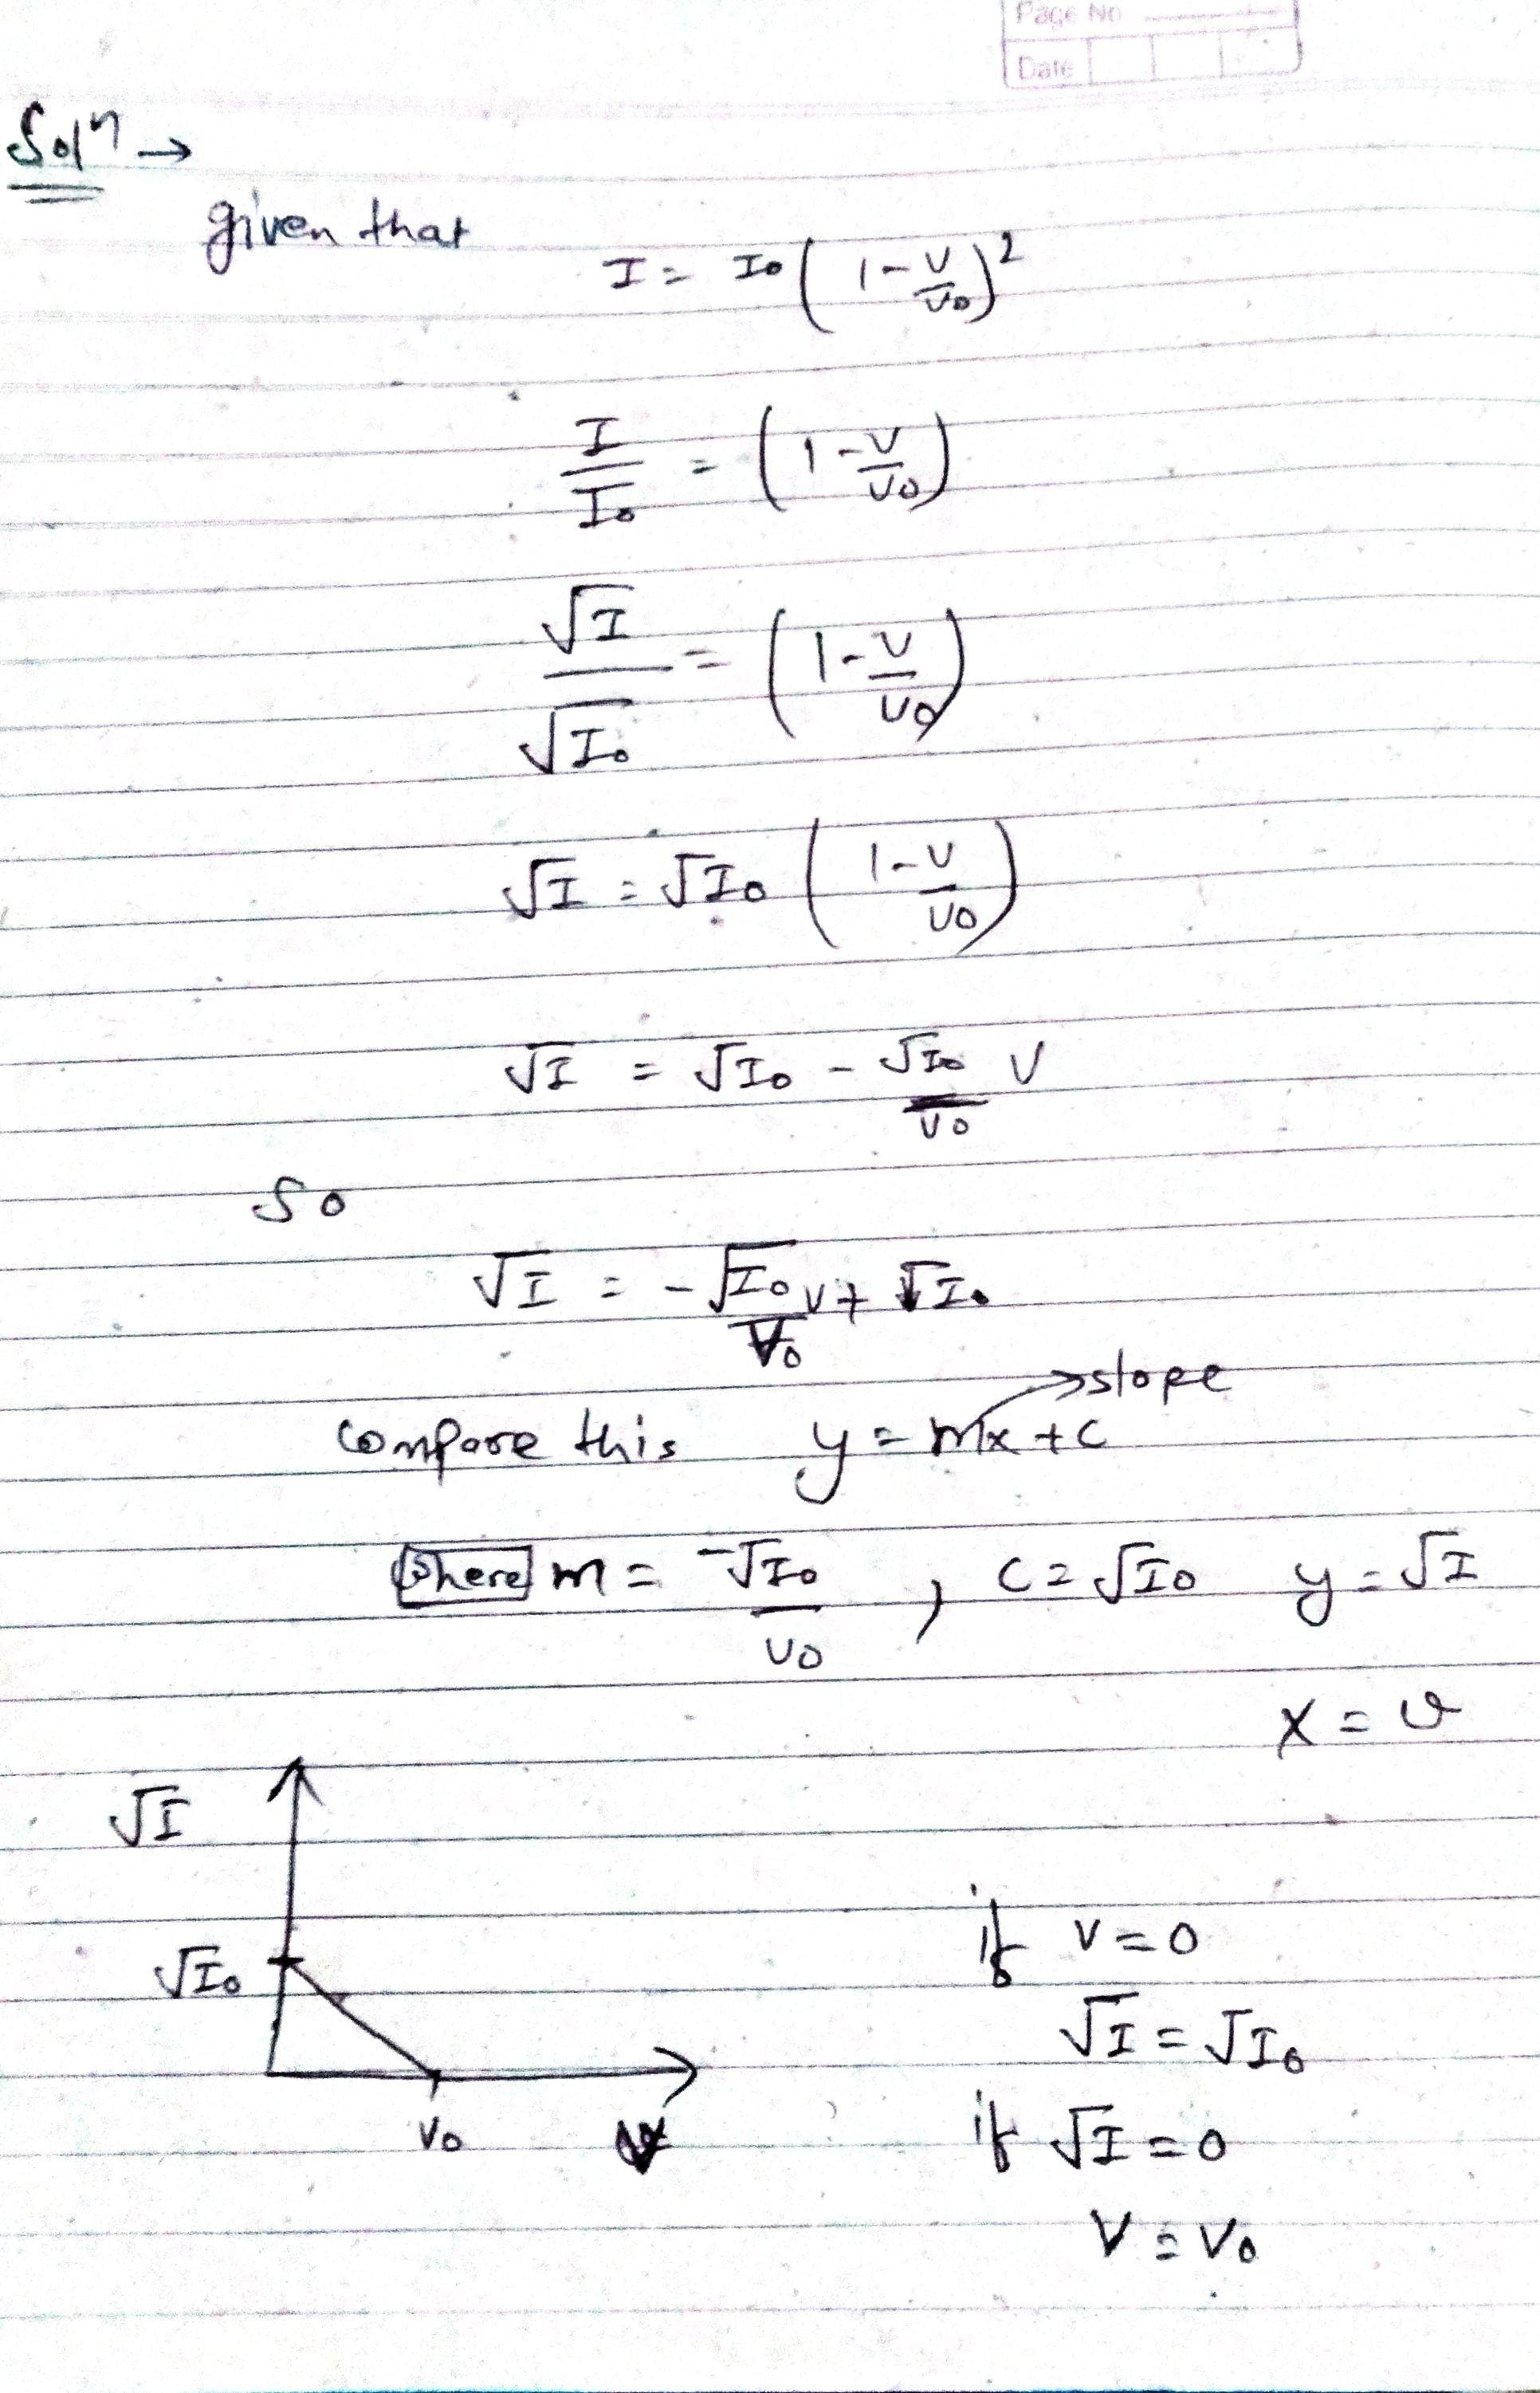 Page No
Date
Solⁿ →
given that
I = I₀ (1 - V/V₀)²
I/I₀ = (1 - V/V₀)
√I/√I₀ = (1 - V/V₀)
√I = √I₀ (1 - V/V₀)
√I = √I₀ - √I₀/V₀ V
So
√I = - √I₀/V₀ V + √I₀
→ slope
compare this y = mx + c
where m = -√I₀/V₀ , C = √I₀ y = √I
x = v
√I
if V = 0
√I₀
√I = √I₀
V₀ V
if √I = 0
V = V₀